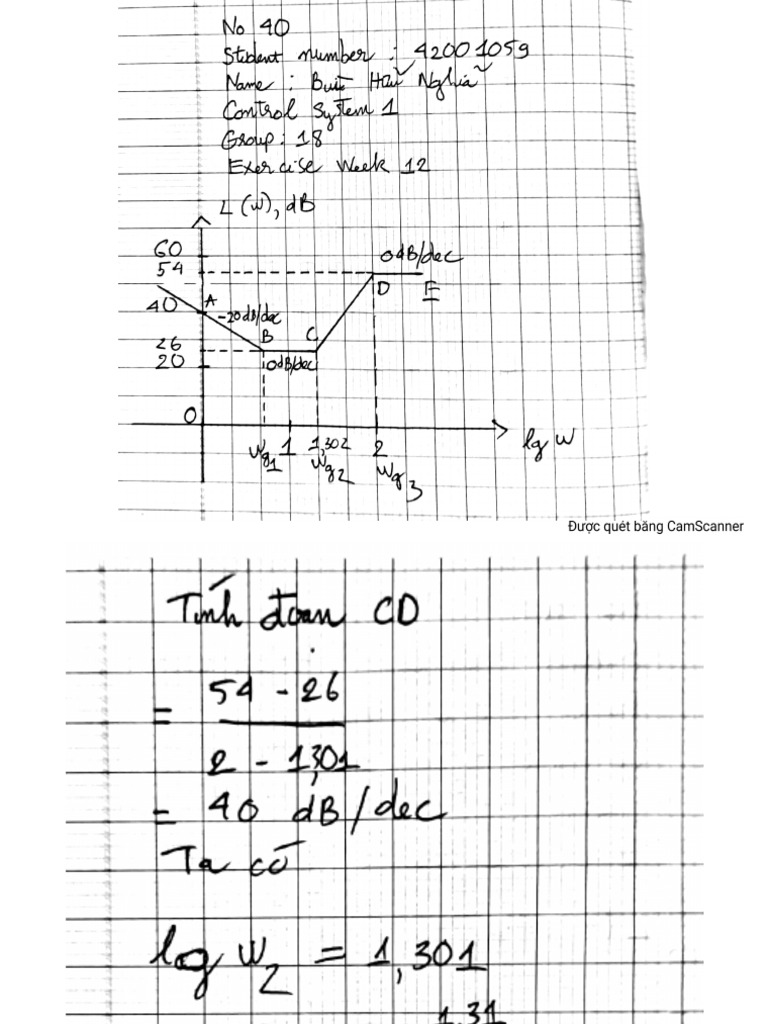 No 40
Student number : 42001059
Name : Bùi Hữu Nghĩa
Control System 1
Group : 18
Exercise Week 12
L (w), dB
60
54
40
26
20
0
A
-20dB/dec
B
0dB/dec
C
0dB/dec
D
E
1
1,302
2
wg1
wg2
wg3
lg w
Được quét bằng CamScanner
Tính đoan CD
= 54 - 26
2 - 1,301
= 40 dB/dec
Ta có
log w2 = 1,301
1,31